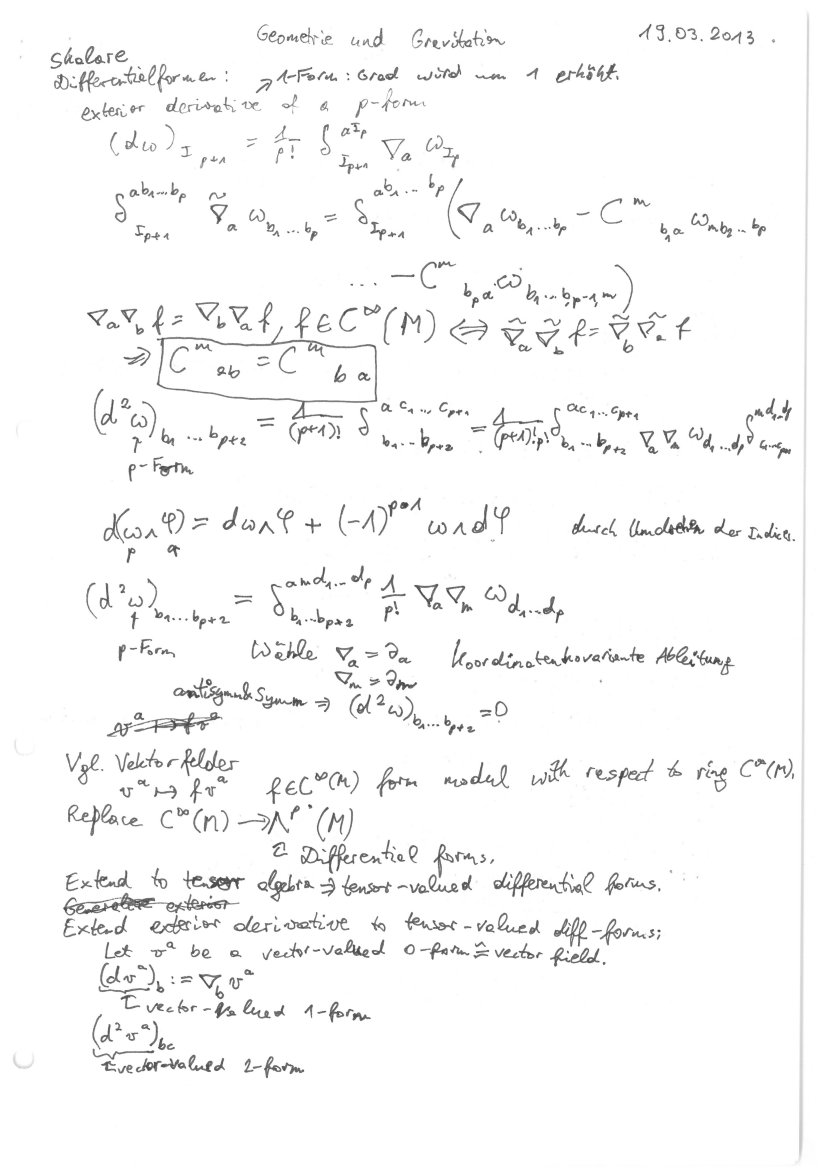 Geometrie und Gravitation 19.03.2013.
Skalare
Differentialformen: → 1-Form: Grad wird um 1 erhöht.
exterior derivative of a p-form
(dω)_{I_{p+1}} = 1/p! δ^{aI_p}_{I_{p+1}} ∇_a ω_{I_p}
δ^{ab_1...b_p}_{I_{p+1}} ∇̃_a ω_{b_1...b_p} = δ^{ab_1...b_p}_{I_{p+1}} (∇_a ω_{b_1...b_p} − C^m_{b_1a} ω_{mb_2...b_p}
... − C^m_{b_pa} ω_{b_1...b_{p-1},m})
∇_a∇_b f = ∇_b∇_a f, f∈C^∞(M) ⟺ ∇̃_a ∇̃_b f = ∇̃_b ∇̃_a f
⇒ C^m_{ab} = C^m_{ba}
(d²ω)_{b_1...b_{p+2}} = 1/(p+1)! δ^{ac_1...c_{p+1}}_{b_1...b_{p+2}} = 1/(p+1)!p! δ^{ac_1...c_{p+1}}_{b_1...b_{p+2}} ∇_a∇_m ω_{d_1...d_p} δ^{md_1...d_p}_{c_1...c_{p+1}}
p-Form
d(ω∧φ) = dω∧φ + (−1)^{p•1} ω∧dφ durch Umdrehen der Indices.
p q
(d²ω)_{b_1...b_{p+2}} = δ^{amd_1...d_p}_{b_1...b_{p+2}} 1/p! ∇_a∇_m ω_{d_1...d_p}
p-Form Wähle ∇_a = ∂_a Koordinatenkovariante Ableitung
∇_m = ∂_m
antisymm&Symm ⇒ (d²ω)_{b_1...b_{p+2}} = 0
v^a ↦ fv^a
Vgl. Vektorfelder
v^a ↦ fv^a f∈C^∞(M) form modul with respect to ring C^∞(M).
Replace C^∞(M) → Λ^p(M)
Differential forms.
Extend to tensor algebra ⇒ tensor-valued differential forms.
Generalize exterior
Extend exterior derivative to tensor-valued diff-forms;
Let v^a be a vector-valued 0-form ≙ vector field.
(dv^a)_b := ∇_b v^a
vector-valued 1-form
(d²v^a)_{bc}
vector-valued 2-form